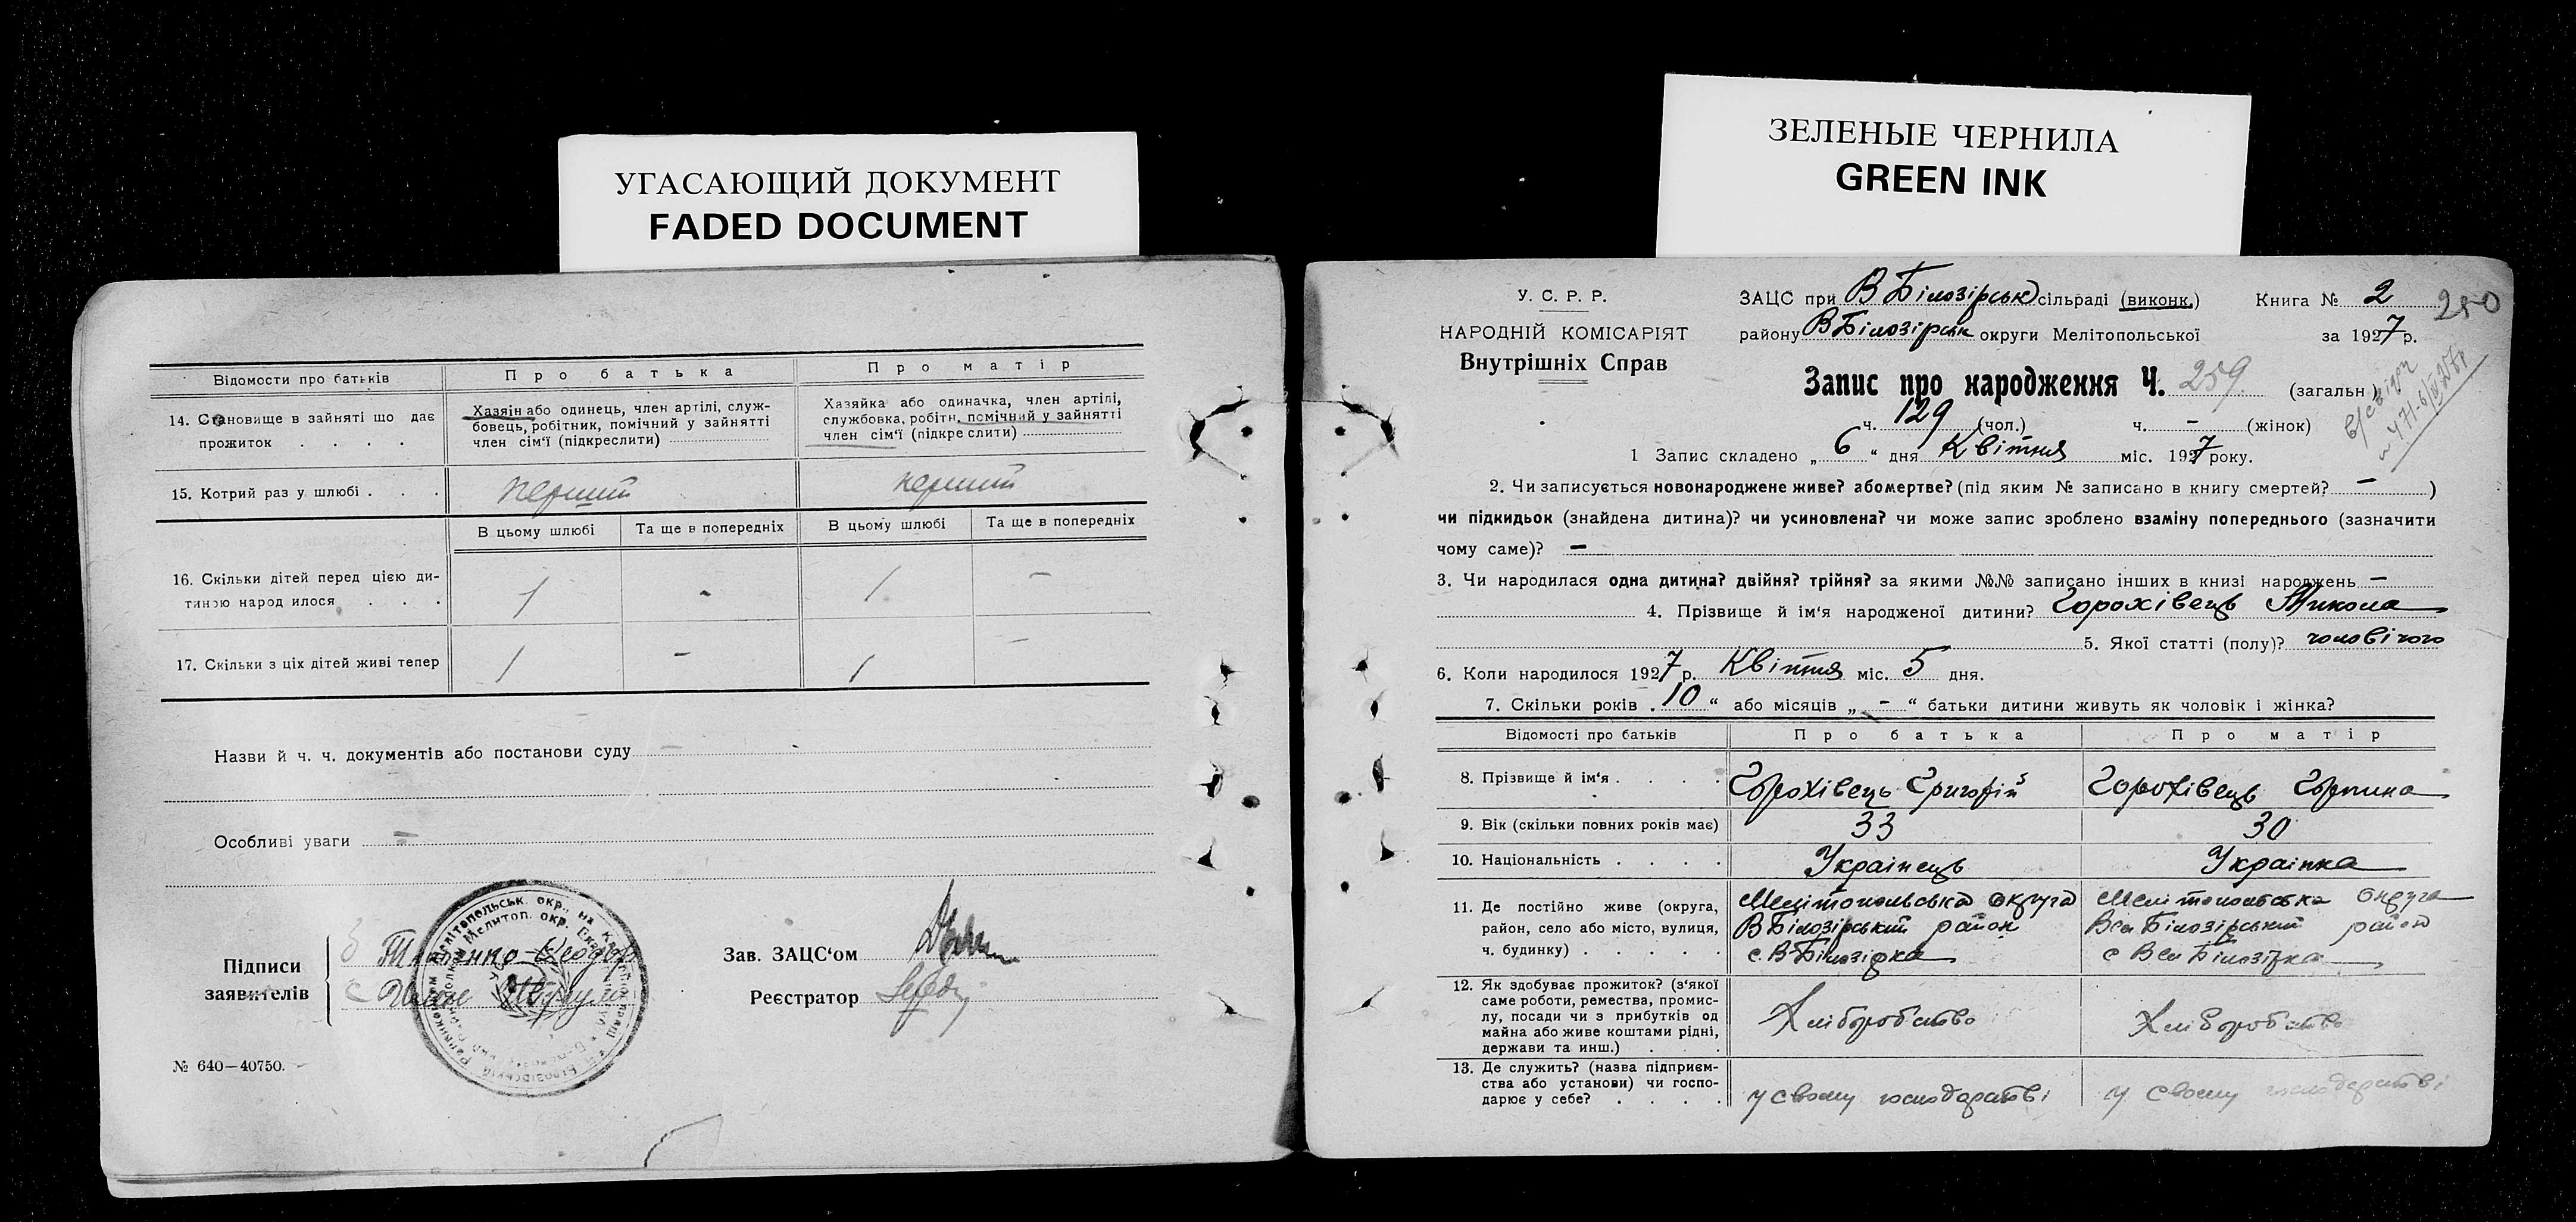 УГАСАЮЩИЙ ДОКУМЕНТ
FADED DOCUMENT
Відомости про батьків
Про батька
Про матір
14. Становище в зайняті що дає прожиток . . . .
Хазяін або одинець, член артілі, служ-
бовець, робітник, помічний у зайнятті
член сім'ї (підкреслити)
Хазяйка або одиначка, член артілі,
службовка, робітн, помічний у зайнятті
член сім'ї (підкреслити)
15. Котрий раз у шлюбі . . .
перший
перший
В цьому шлюбі
Та ще в попередніх
В цьому шлюбі
Та ще в попередніх
16. Скільки дітей перед цією ди-
тиною народилося . . .
1
-
1
-
17. Скільки з ціх дітей живі тепер
1
-
1
-
Назви й ч. ч. документів або постанови суду -
Особливі уваги -
Підписи
заявителів
Зав. ЗАЦС'ом
Реєстратор
№ 640—40750.
ЗЕЛЕНЫЕ ЧЕРНИЛА
GREEN INK
У. С. Р. Р.
НАРОДНІЙ КОМІСАРІЯТ
Внутрішніх Справ
ЗАЦС при В Білозірськ сільраді (виконк.)
Книга № 2
250
району В Білозірськ округи Мелітопольської
за 1927 р.
Запис про народження Ч. 259 (загальн.)
ч. 129 (чол.) ч. - (жінок)
1 Запис складено „ 6 “ дня Квітня міс. 1927 року.
2. Чи записується новонароджене живе? або мертве? (під яким № записано в книгу смертей? - )
чи підкидьок (знайдена дитина)? чи усиновлена? чи може запис зроблено взаміну попереднього (зазначити
чому саме)? -
3. Чи народилася одна дитина? двійня? трійня? за якими №№ записано інших в книзі народжень -
4. Прізвище й ім'я народженої дитини? Горохівець Микола
5. Якої статті (полу)? чоловічого
6. Коли народилося 1927 р. Квітня міс. 5 дня.
7. Скільки років „ 10 “ або місяців „ - “ батьки дитини живуть як чоловік і жінка?
Відомості про батьків
Про батька
Про матір
8. Прізвище й ім'я . . . .
Горохівець Григорій
Горохівець Горпина
9. Вік (скільки повних років має)
33
30
10. Національність . . . .
Українець
Українка
11. Де постійно живе (округа,
район, село або місто, вулиця,
ч. будинку) . . . . .
Мелітопольська округа
В Білозірський район
с. В Білозірка
Мелітопольська округа
Вел Білозірський район
с Вел Білозірка
12. Як здобуває прожиток? (з'якої
саме роботи, ремества, промис-
лу, посади чи з прибутків од
майна або живе коштами рідні,
держави та инш.) . . .
Хліборобство
Хліборобство
13. Де служить? (назва підприєм-
ства або установи) чи госпо-
дарює у себе? . . . .
у своему господарстві
у своему господарстві